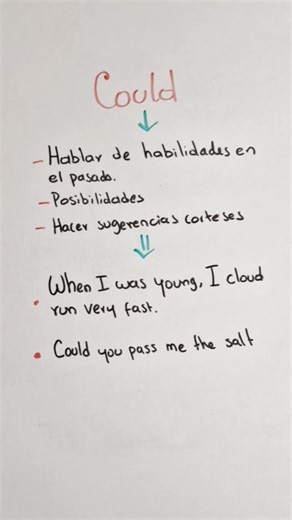 Could
- Hablar de habilidades en
el pasado.
- Posibilidades
- Hacer sugerencias corteses
When I was young, I cloud
run very fast.
Could you pass me the salt